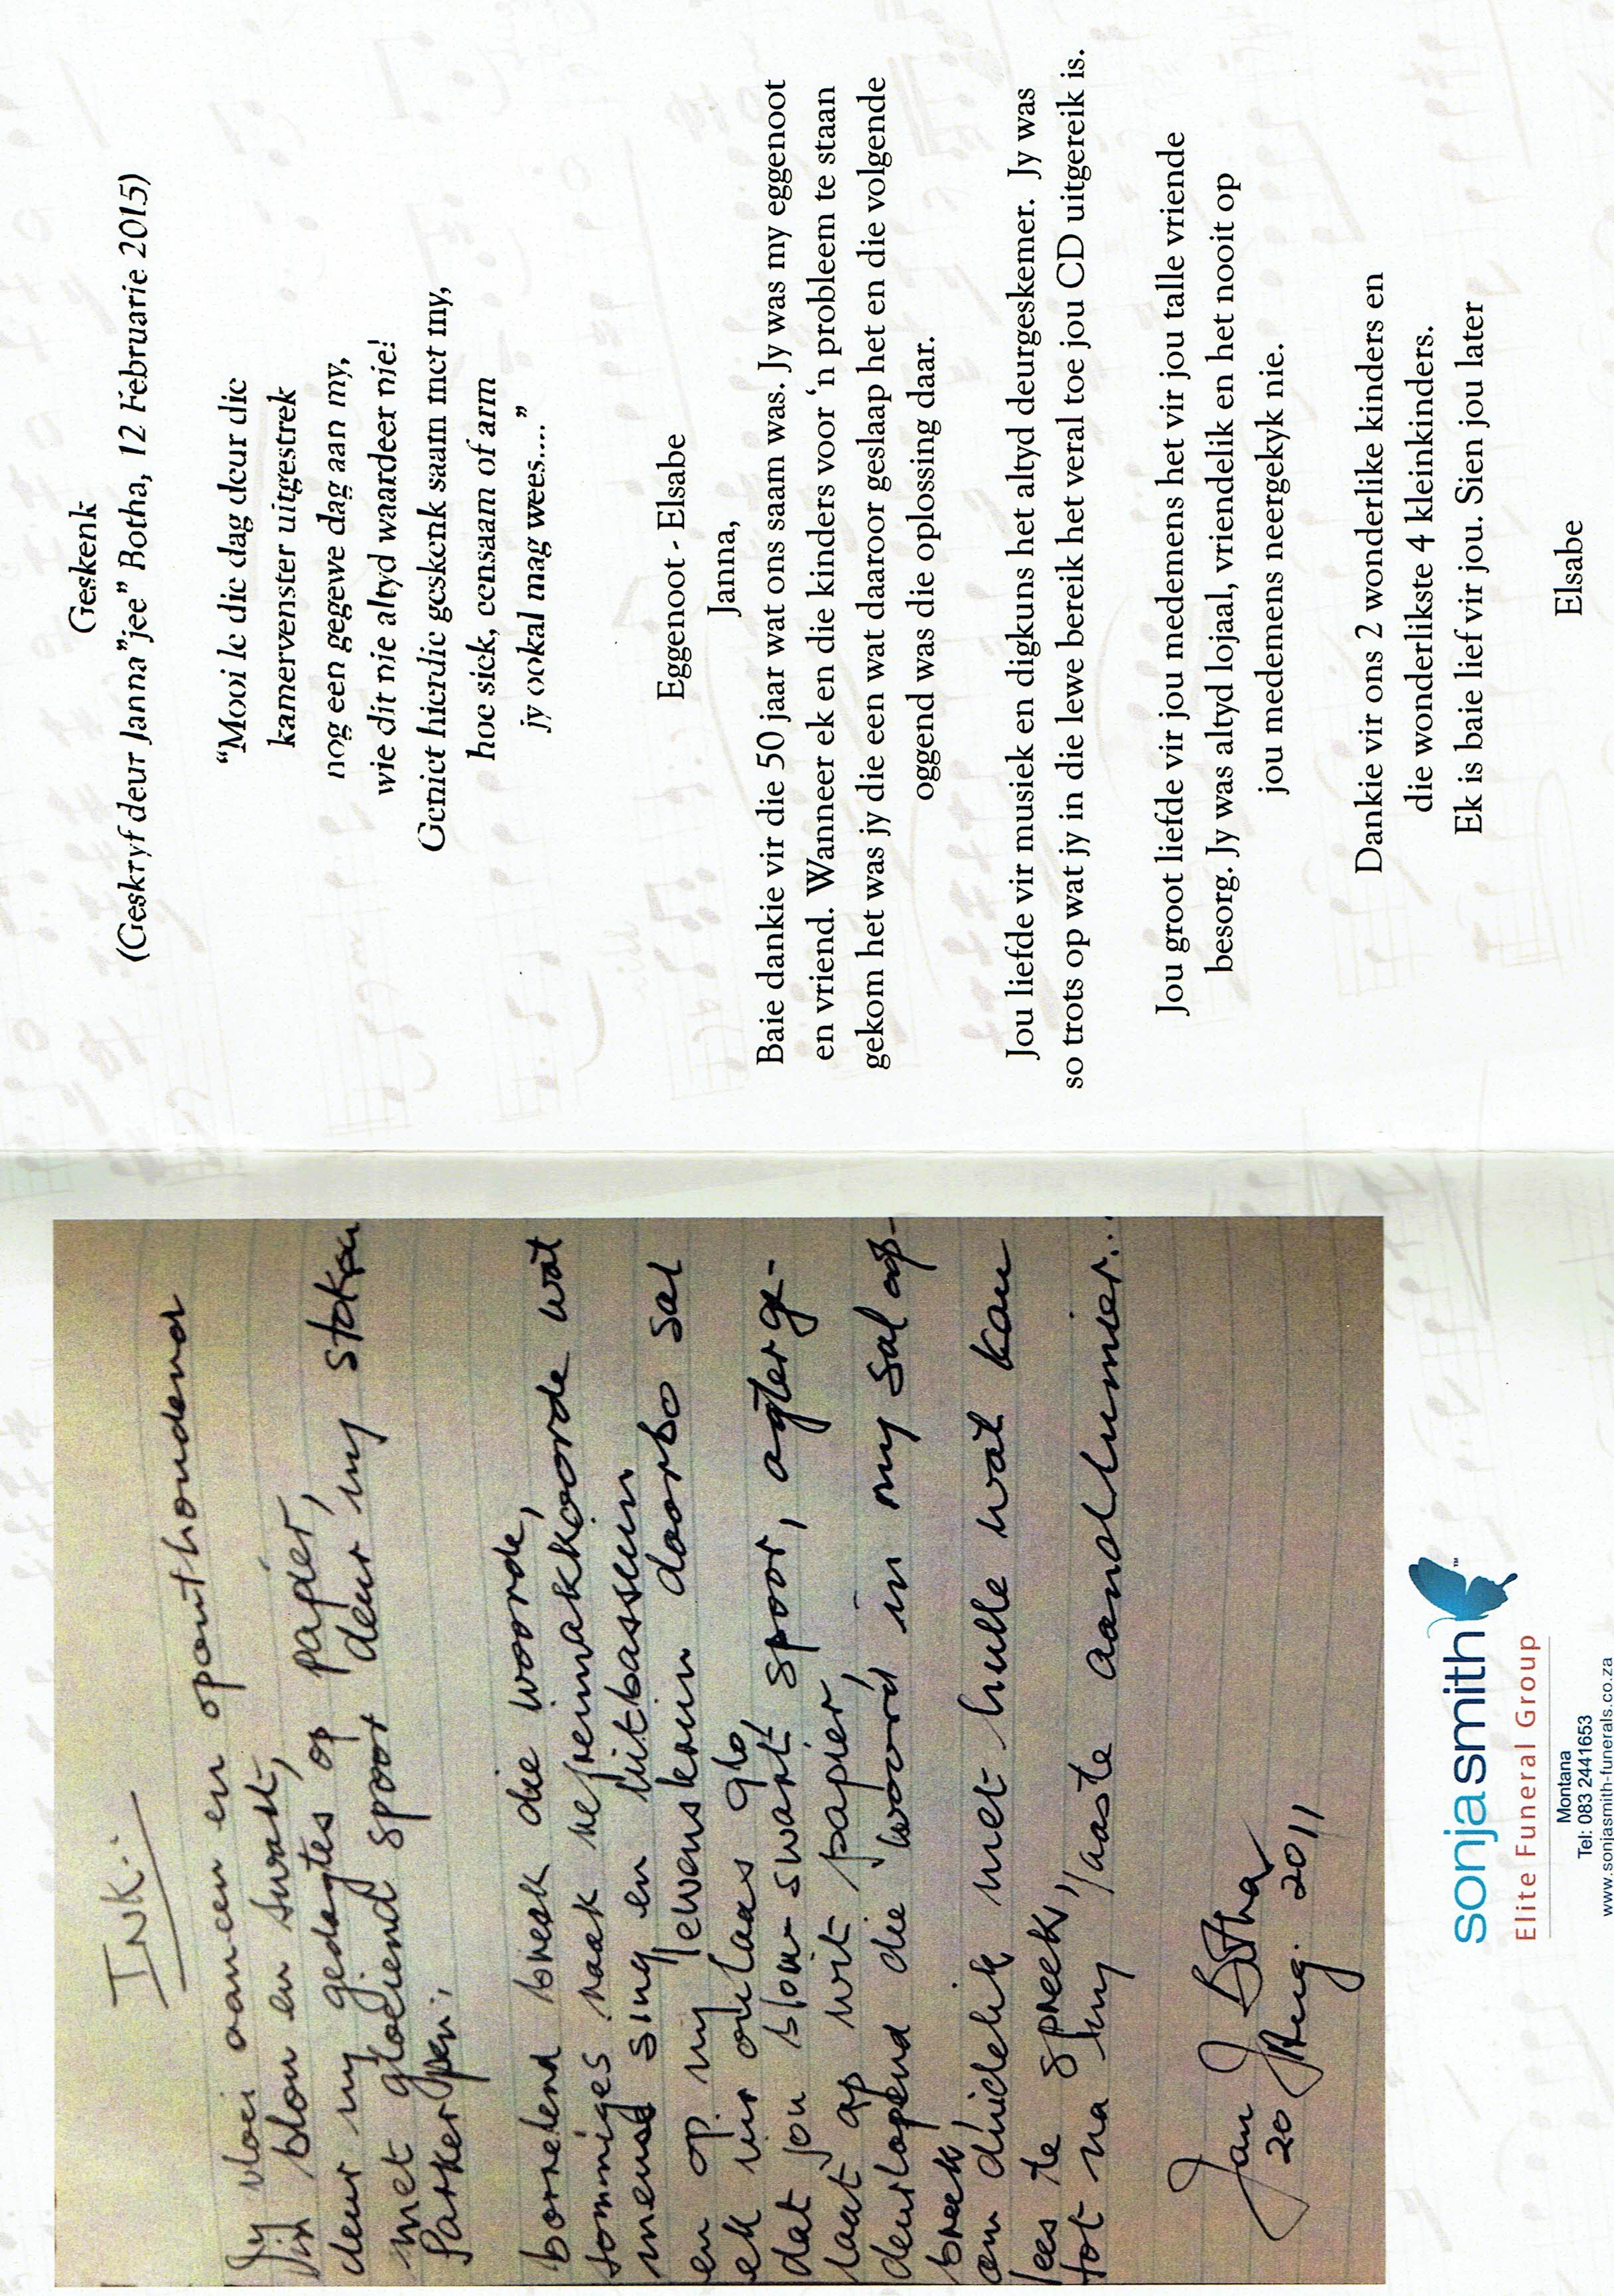 INK:
Jy vloei aaneen en oponthoudend
in blou en swart,
deur my gedagtes op papier,
met gloeiend spoor deur my
Parkerpen;
borrelend breek die woorde,
sommiges raak refreinakkoorde wat
mense sing en uitbassuin
en op my lewenskruin daarbo sal
ek vir oulaas glo
dat jou blou-swart spoor, agterge-
laat op wit papier,
deurlopend die woord in my sal op-
breek
om duidelik met hulle wat kan
lees te spreek,
tot na my laaste aandluimier...
Jan J Botha
20 Aug. 2011
sonja smith™
Elite Funeral Group
Montana
Tel: 083 2441653
www.sonjasmith-funerals.co.za
Geskenk
(Geskryf deur Janna"jee" Botha, 12 Februarie 2015)
“Mooi le die dag deur die
kamervenster uitgestrek
nog een gegewe dag aan my,
wie dit nie altyd waardeer nie!
Geniet hierdie geskenk saam met my,
hoe siek, eensaam of arm
jy ookal mag wees....”
Eggenoot - Elsabe
Janna,
Baie dankie vir die 50 jaar wat ons saam was. Jy was my eggenoot
en vriend. Wanneer ek en die kinders voor ‘n probleem te staan
gekom het was jy die een wat daaroor geslaap het en die volgende
oggend was die oplossing daar.
Jou liefde vir musiek en digkuns het altyd deurgeskemer. Jy was
so trots op wat jy in die lewe bereik het veral toe jou CD uitgereik is.
Jou groot liefde vir jou medemens het vir jou talle vriende
besorg. Jy was altyd lojaal, vriendelik en het nooit op
jou medemens neergekyk nie.
Dankie vir ons 2 wonderlike kinders en
die wonderlikste 4 kleinkinders.
Ek is baie lief vir jou. Sien jou later
Elsabe